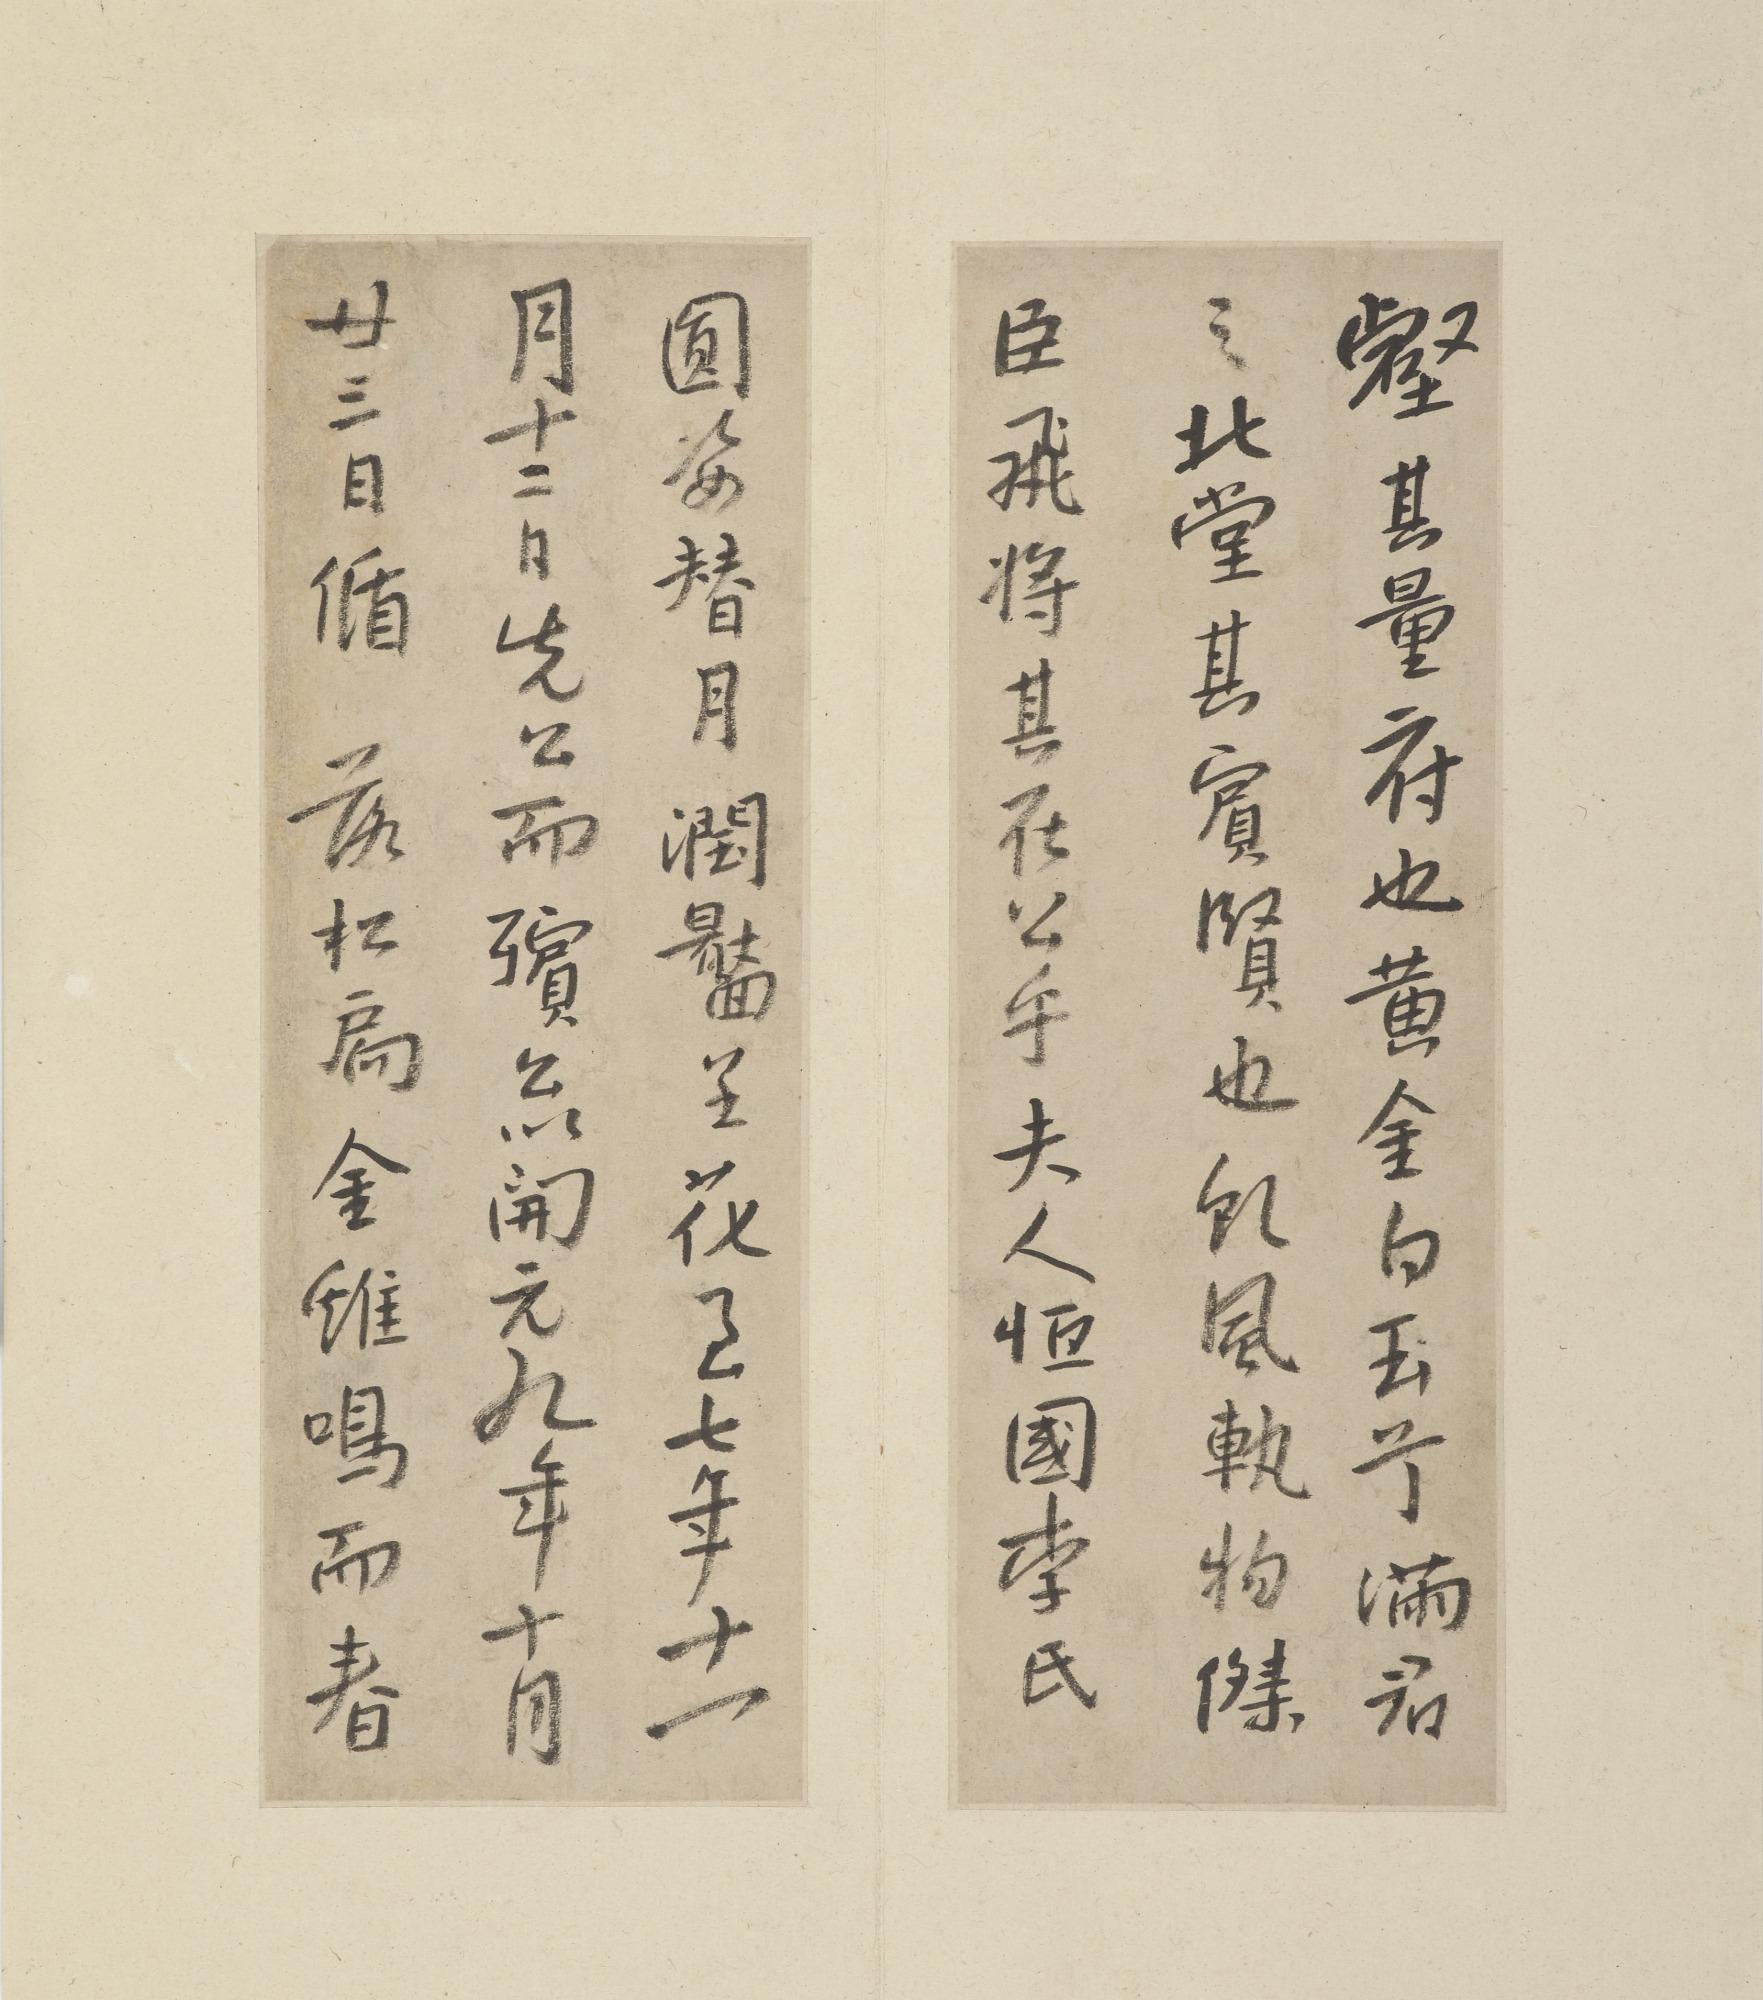 壑其量府也黄金白玉不滿君
之北堂其賓賢也飲風執物傑
臣飛将其在公乎夫人恒國李氏
圓姿替月潤呈花以七年十一
月十二日先公而殯開元九年十月
廿三日循落松扃金雞鳴而春